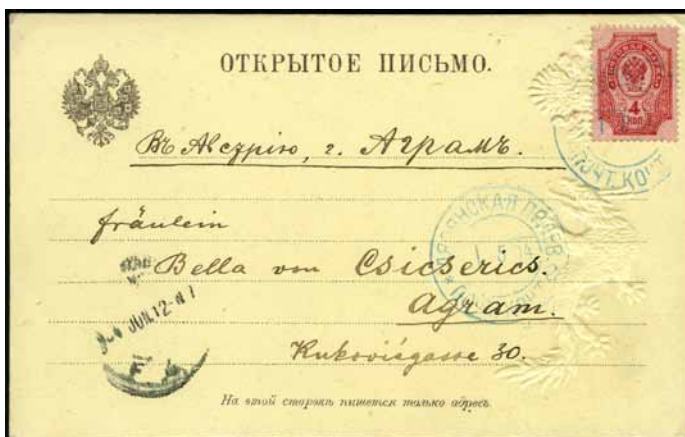 ОТКРЫТОЕ ПИСЬМО.
4
КОП
ПОЧТ. КОНТ
Въ Австрію, г. Аграмъ.
fräulein
Bella von Csicserics.
Agram.
Kukovićgasse 30.
JUN. 12
На этой сторонѣ пишется только адресъ.